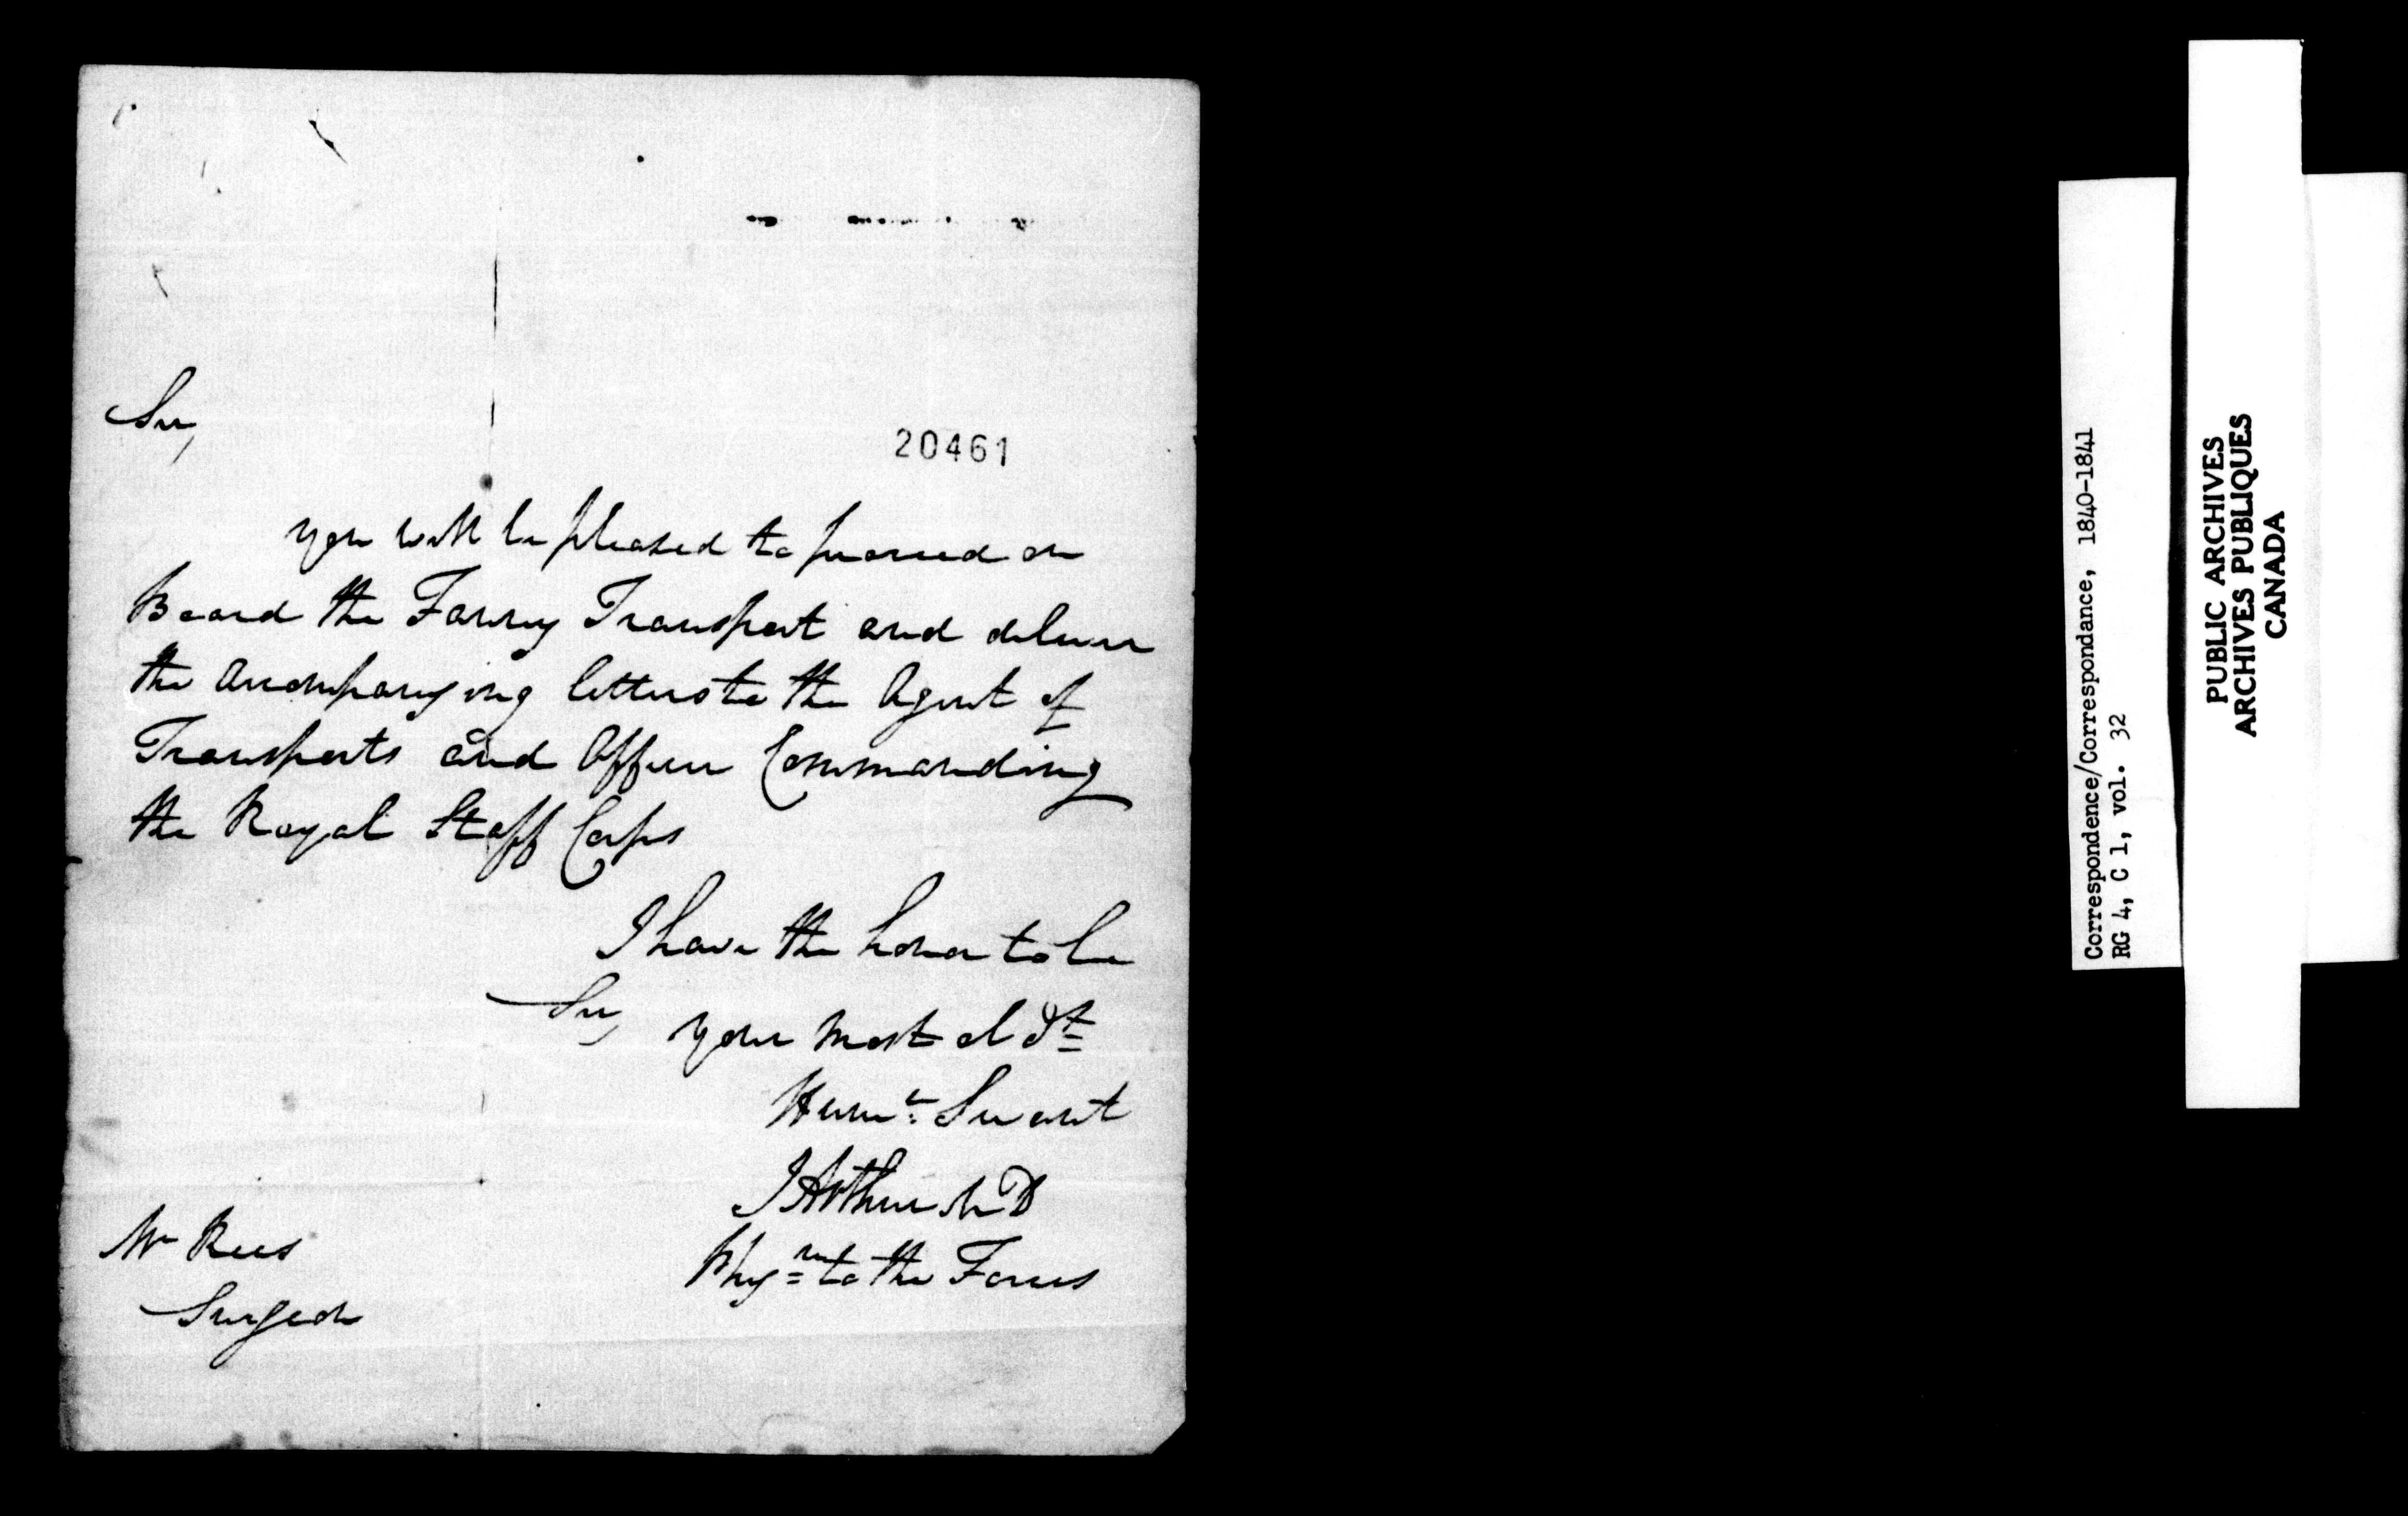 Sir,
20461
you will be pleased to proceed on
Board the Fanny Transport and deliver
the accompanying letters to the Agent of
Transports and Officer Commanding
the Royal Staff Corps
I have the honor to be
Sir,
your most obdt
Humb. Servant
J Arthur MD
Phyn to the Forces
Mr Rees
Surgeon
Correspondence/Correspondance, 1840-1841
RG 4, C 1, vol. 32
PUBLIC ARCHIVES
ARCHIVES PUBLIQUES
CANADA